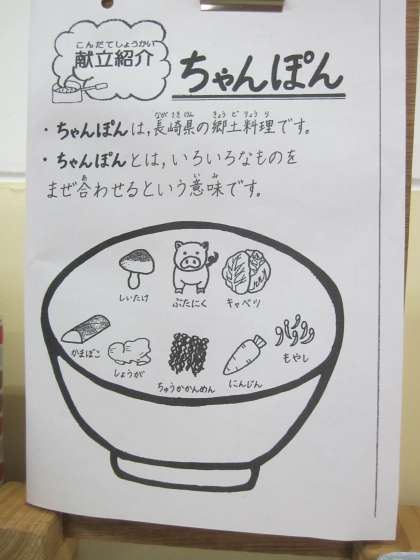 こんだてしょうかい
献立紹介
ちゃんぽん
ながさきけん きょうどりょうり
・ちゃんぽんは,長崎県の郷土料理です。
・ちゃんぽんとは,いろいろなものを
あ いみ
まぜ合わせるという意味です。
しいたけ ぶたにく キャベツ
かまぼこ しょうが ちゅうかかんめん にんじん もやし